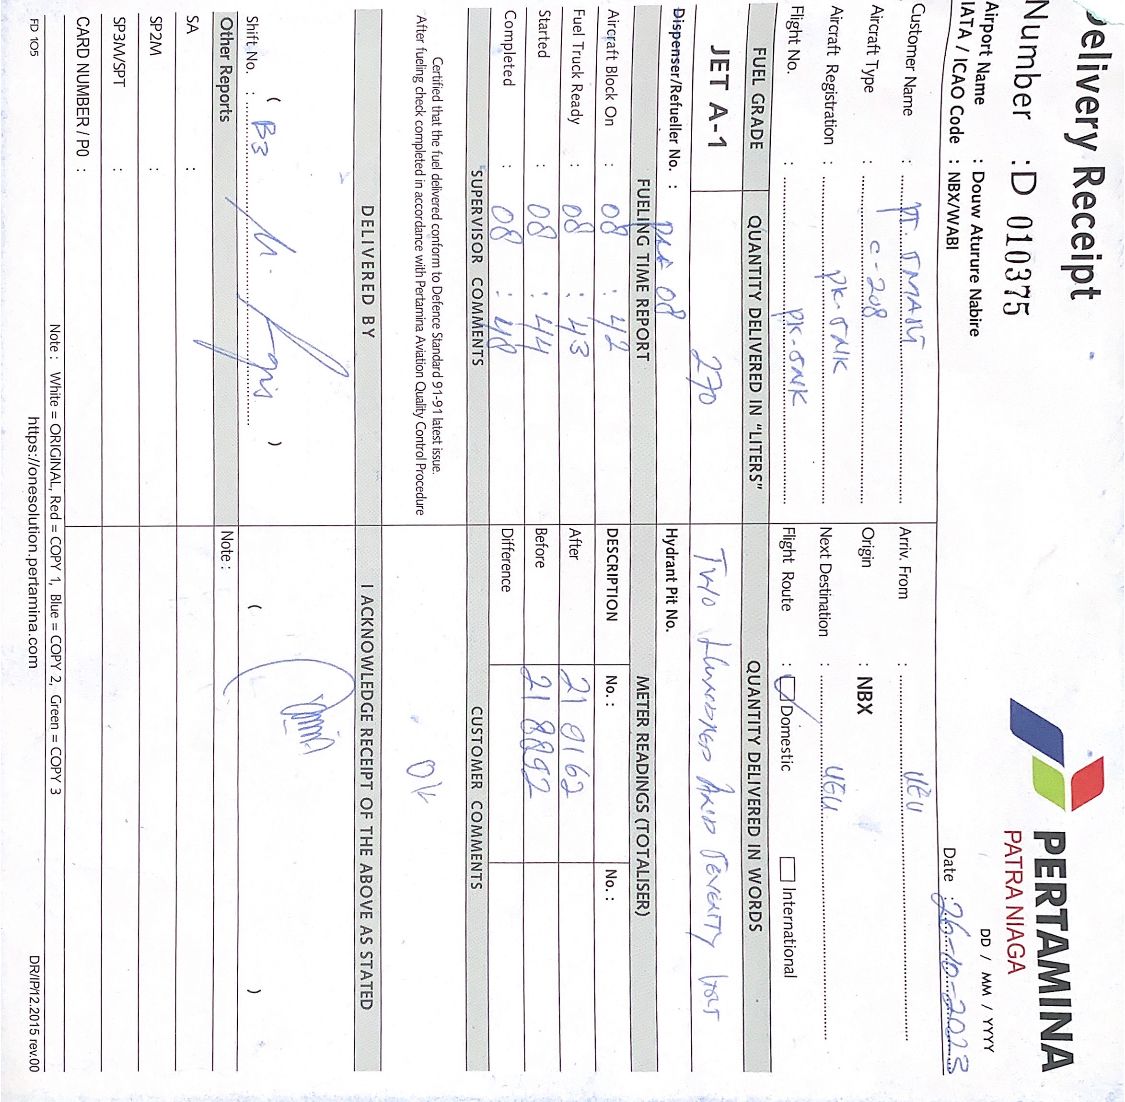 Delivery Receipt
Number : D 010375
PERTAMINA
PATRA NIAGA
DD / MM / YYYY
Airport Name : Douw Aturure Nabire
IATA / ICAO Code : NBX/WABI
Date : 26-10-2023
Customer Name :
Arriv. From : UGU
Aircraft Type : C-208
Origin : NBX
Aircraft Registration : PK-SNK
Next Destination : UGU
Flight No. : PK-SNK
Flight Route : Domestic International
FUEL GRADE QUANTITY DELIVERED IN "LITERS" QUANTITY DELIVERED IN WORDS
JET A-1 270 Two Hundred And Seventy
Dispenser/Refueller No. : 08 Hydrant Pit No.
FUELING TIME REPORT METER READINGS (TOTALISER)
Aircraft Block On : 08 : 42 DESCRIPTION No. : No. :
Fuel Truck Ready : 08 : 43 After 219162
Started : 08 : 44 Before 218892
Completed : 08 : 48 Difference
SUPERVISOR COMMENTS CUSTOMER COMMENTS
Certified that the fuel delivered conform to Defence Standard 91-91 latest issue.
After fueling check completed in accordance with Pertamina Aviation Quality Control Procedure
OK
DELIVERED BY I ACKNOWLEDGE RECEIPT OF THE ABOVE AS STATED
( ) ( )
Shift No. : B3
Other Reports Note :
SA :
SP2M :
SP3M/SPT :
CARD NUMBER / PO :
Note : White = ORIGINAL, Red = COPY 1, Blue = COPY 2, Green = COPY 3
FD 105 https://onesolution.pertamina.com DR/IP/12.2015 rev.00